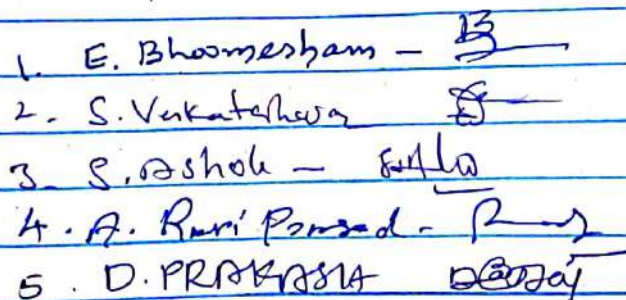 1. E. Bhoomesham -
2. S. Venkateshwara
3. S. Ashok -
4. A. Ravi Prasad -
5. D. PRAKASH